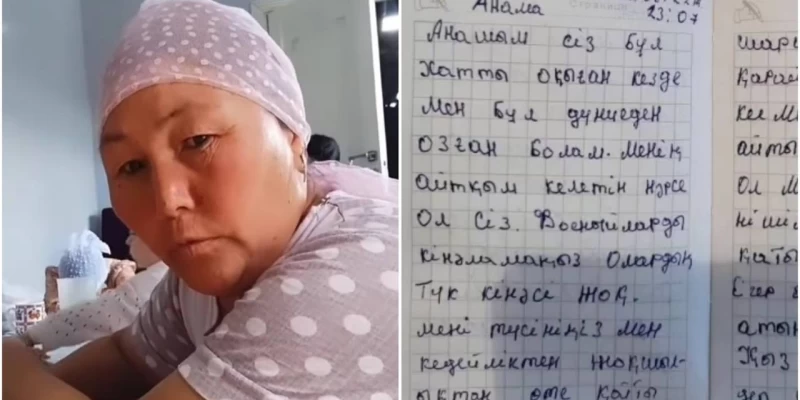 Анама
23:07
Анашым сіз бұл
хатты оқыған кезде
Мен бұл дүниеден
озған болам. Менің
айтқым келетін нәрсе
Ол сіз. Военыйларды
кінәламаңыз Олардың
Түк кінәсі жоқ.
мені түсініңіз мен
кедейліктен жоқшыл-
ықтан өте қатты
қарай
айты
Ол М
ні
қаты
Егер
атын
Қыз
дер